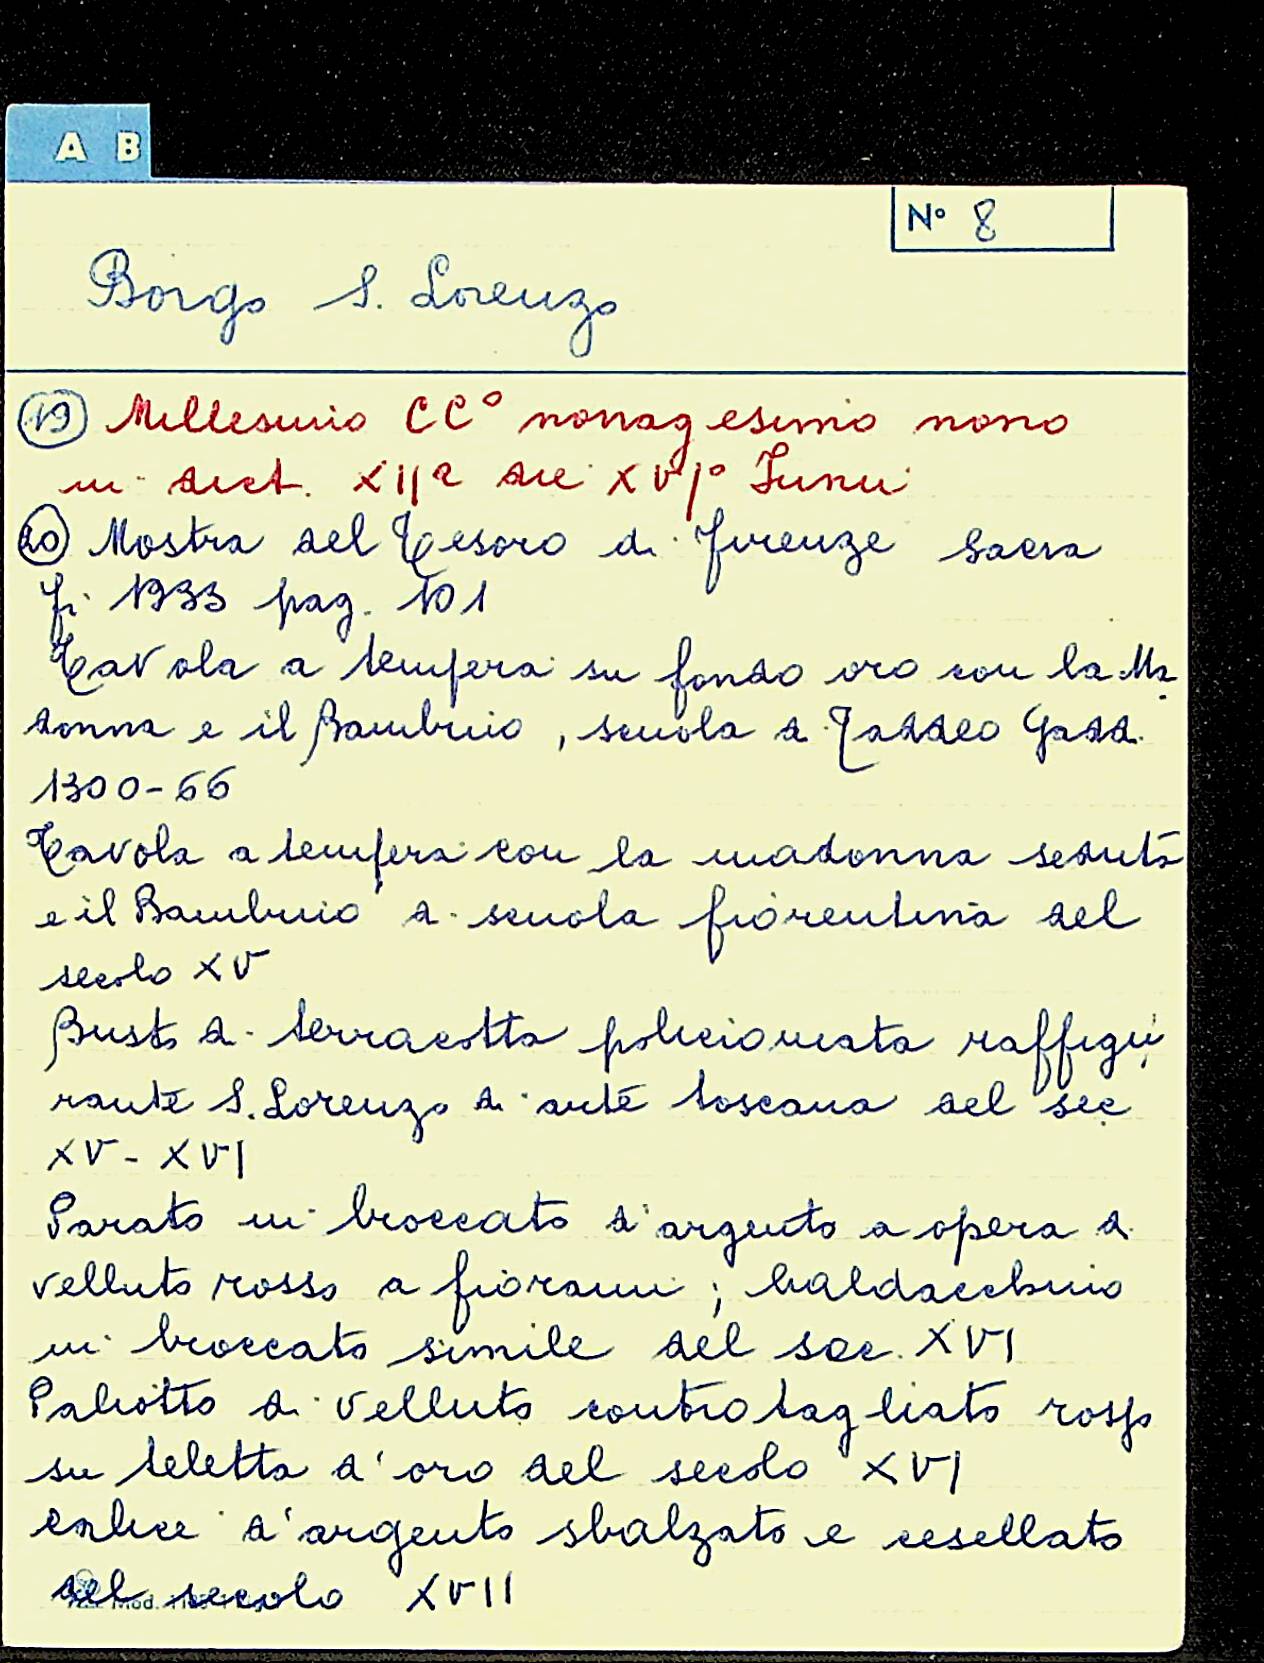 A B
N° 8
Borgo S. Lorenzo
19 Millesimo CC° nonagesimo nono
in dict. XIIa die XVI° Junii
20 Mostra del Tesoro di Firenze Sacra
Fi. 1933 pag. 101
Tavola a tempera su fondo oro con la Ma
donna e il Bambino, scuola di Taddeo Gaddi
1300-66
Tavola a tempera con la madonna seduta
e il Bambino di scuola fiorentina del
secolo XV
Busto di terracotta policromata raffigu
rante S. Lorenzo di arte toscana del sec
XV - XVI
Parato in broccato d'argento a opera di
velluto rosso a fiorami; baldacchino
in broccato simile del sec. XVI
Paliotto di velluto controtagliato rosso
su teletta d'oro del secolo XVI
calice d'argento sbalzato e cesellato
del secolo XVII